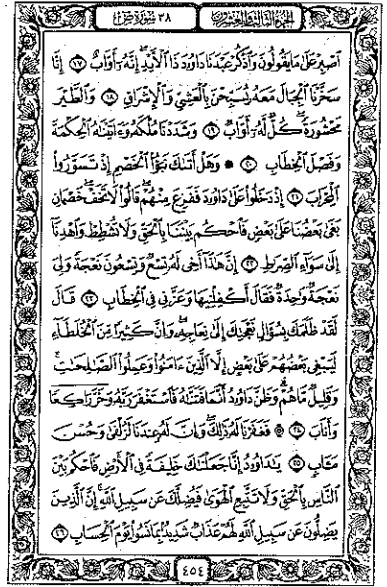 الجزء الثالث والعشرون ٣٨ سورة ص
ٱصْبِرْ عَلَىٰ مَا يَقُولُونَ وَٱذْكُرْ عَبْدَنَا دَاوُۥدَ ذَا ٱلْأَيْدِ ۖ إِنَّهُۥٓ أَوَّابٌ ١٧ إِنَّا
سَخَّرْنَا ٱلْجِبَالَ مَعَهُۥ يُسَبِّحْنَ بِٱلْعَشِىِّ وَٱلْإِشْرَاقِ ١٨ وَٱلطَّيْرَ
مَحْشُورَةً ۖ كُلٌّ لَّهُۥٓ أَوَّابٌ ١٩ وَشَدَدْنَا مُلْكَهُۥ وَءَاتَيْنَٰهُ ٱلْحِكْمَةَ
وَفَصْلَ ٱلْخِطَابِ ٢٠ ۞ وَهَلْ أَتَىٰكَ نَبَؤُا۟ ٱلْخَصْمِ إِذْ تَسَوَّرُوا۟
ٱلْمِحْرَابَ ٢١ إِذْ دَخَلُوا۟ عَلَىٰ دَاوُۥدَ فَفَزِعَ مِنْهُمْ ۖ قَالُوا۟ لَا تَخَفْ ۖ خَصْمَانِ
بَغَىٰ بَعْضُنَا عَلَىٰ بَعْضٍ فَٱحْكُم بَيْنَنَا بِٱلْحَقِّ وَلَا تُشْطِطْ وَٱهْدِنَآ
إِلَىٰ سَوَآءِ ٱلصِّرَٰطِ ٢٢ إِنَّ هَٰذَآ أَخِى لَهُۥ تِسْعٌ وَتِسْعُونَ نَعْجَةً وَلِىَ
نَعْجَةٌ وَٰحِدَةٌ فَقَالَ أَكْفِلْنِيهَا وَعَزَّنِى فِى ٱلْخِطَابِ ٢٣ قَالَ
لَقَدْ ظَلَمَكَ بِسُؤَالِ نَعْجَتِكَ إِلَىٰ نِعَاجِهِۦ ۖ وَإِنَّ كَثِيرًا مِّنَ ٱلْخُلَطَآءِ
لَيَبْغِى بَعْضُهُمْ عَلَىٰ بَعْضٍ إِلَّا ٱلَّذِينَ ءَامَنُوا۟ وَعَمِلُوا۟ ٱلصَّٰلِحَٰتِ
وَقَلِيلٌ مَّا هُمْ ۗ وَظَنَّ دَاوُۥدُ أَنَّمَا فَتَنَّٰهُ فَٱسْتَغْفَرَ رَبَّهُۥ وَخَرَّ رَاكِعًا
وَأَنَابَ ۩ ٢٤ فَغَفَرْنَا لَهُۥ ذَٰلِكَ ۖ وَإِنَّ لَهُۥ عِندَنَا لَزُلْفَىٰ وَحُسْنَ
مَـَٔابٍ ٢٥ يَٰدَاوُۥدُ إِنَّا جَعَلْنَٰكَ خَلِيفَةً فِى ٱلْأَرْضِ فَٱحْكُم بَيْنَ
ٱلنَّاسِ بِٱلْحَقِّ وَلَا تَتَّبِعِ ٱلْهَوَىٰ فَيُضِلَّكَ عَن سَبِيلِ ٱللَّهِ ۚ إِنَّ ٱلَّذِينَ
يَضِلُّونَ عَن سَبِيلِ ٱللَّهِ لَهُمْ عَذَابٌ شَدِيدٌۢ بِمَا نَسُوا۟ يَوْمَ ٱلْحِسَابِ ٢٦
٤٥٤